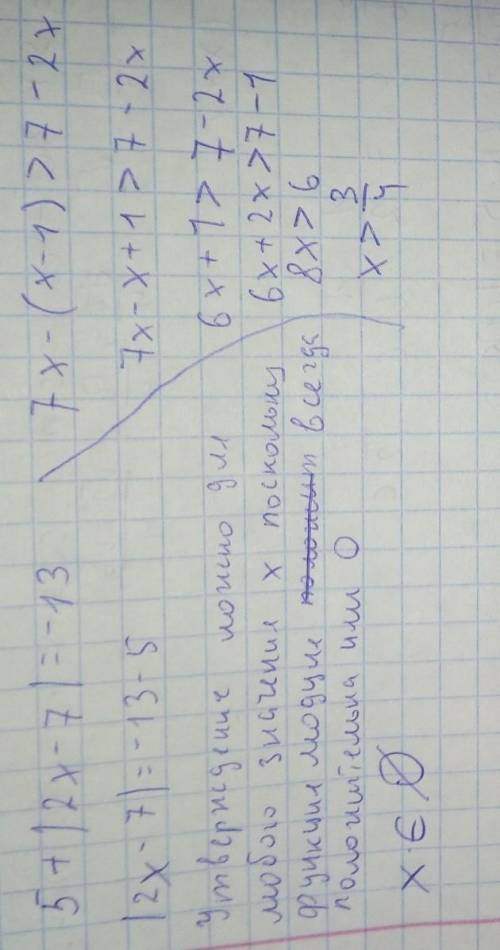 5 + |2x - 7| = -13
|2x - 7| = -13 - 5
утверждение ложно для
любого значения x поскольку
функция модуля всегда
положительна или 0
x ∈ ∅
7x - (x - 1) > 7 - 2x
7x - x + 1 > 7 - 2x
6x + 1 > 7 - 2x
6x + 2x > 7 - 1
8x > 6
x > 3/4